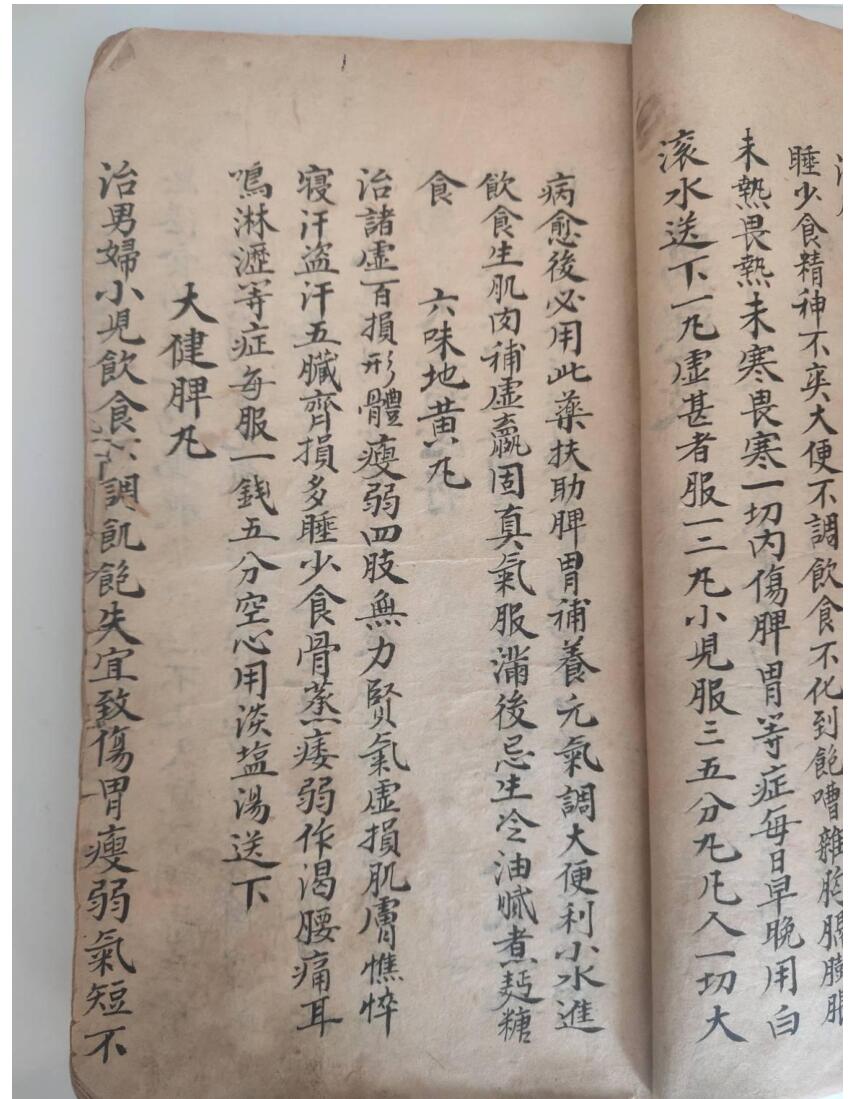 睡少食精神不爽大便不調飲食不化到飽嘈雜胸膈膨脹
未熱畏熱未寒畏寒一切內傷脾胃等症每日早晚用白
滚水送下一丸虛甚者服一二丸小児服三五分丸凡人一切大
病愈後必用此藥扶助脾胃補養元氣調大便利小水進
飲食生肌肉補虛羸固真氣服滿後忌生冷油膩煮麪糖
食
六味地黃丸
治諸虛百損形體瘦弱四肢無力賢氣虛損肌膚憔悴
寝汗盗汗五臟齊損多睡少食骨蒸痿弱作渴腰痛耳
鳴淋瀝等症每服一錢五分空心用淡塩湯送下
大健脾丸
治男婦小児飲食不調飢飽失宜致傷胃瘦弱氣短不